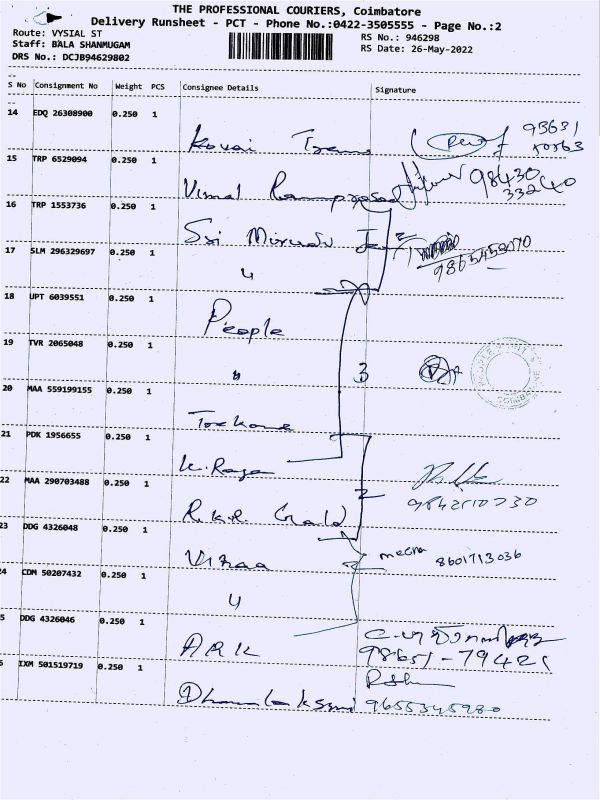 THE PROFESSIONAL COURIERS, Coimbatore
Delivery Runsheet - PCT - Phone No.:0422-3505555 - Page No.:2
Route: VYSIAL ST
RS No.: 946298
Staff: BALA SHANMUGAM
RS Date: 26-May-2022
DRS No.: DCJB94629802
S No Consignment No Weight PCS Consignee Details Signature
14 EDQ 26308900 0.250 1
Kovai
15 TRP 6529094 0.250 1
Vimal Ramprasad 98430
33240
16 TRP 1553736 0.250 1
Sri
17 SLM 296329697 0.250 1
18 UPT 6039551 0.250 1
People
19 TVR 2065048 0.250 1
3
20 MAA 559199155 0.250 1
21 PDK 1956655 0.250 1
K. Raja
22 MAA 290703488 0.250 1
R.K.R Gold
23 DDG 4326048 0.250 1
meena 8601713036
24 CDM 50207432 0.250 1
5 DDG 4326046 0.250 1
ARK 98651-79421
6 IXM 501519719 0.250 1
Dhanalakshmi 9655345980